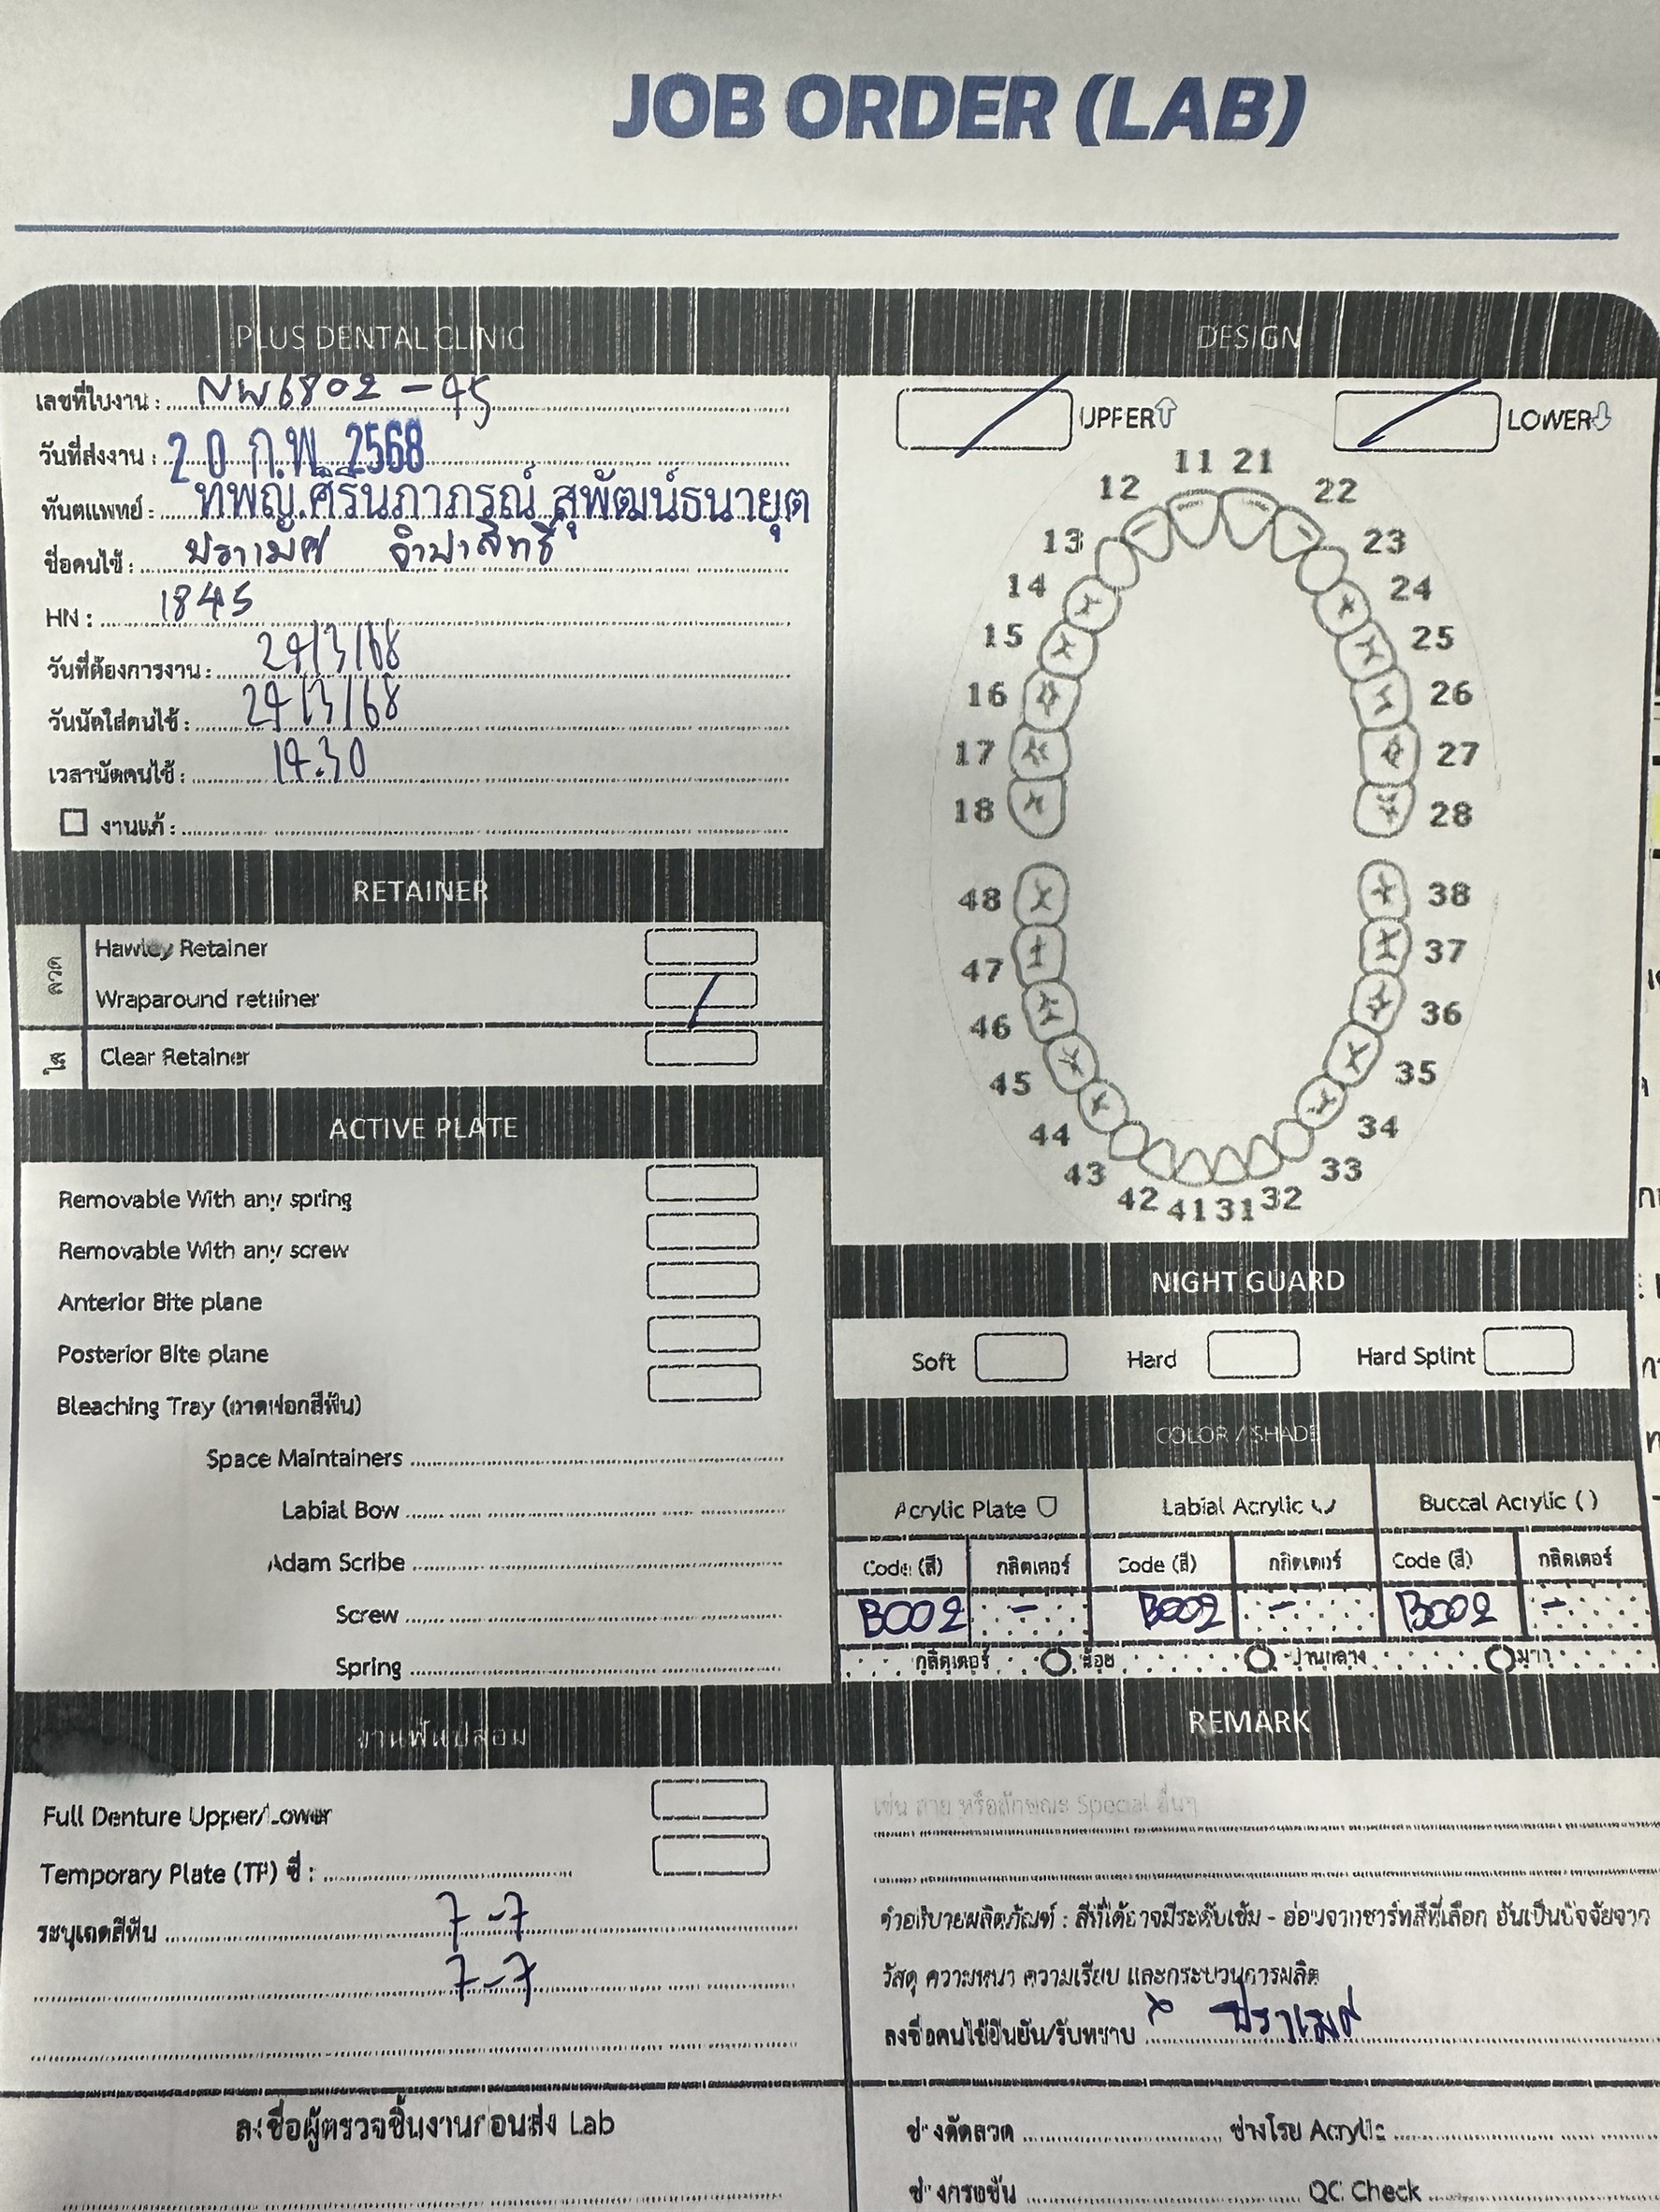 JOB ORDER (LAB)
PLUS DENTAL CLINIC
เลขที่ใบงาน : NW6802-45
วันที่ส่งงาน : 20 ก.พ. 2568
ทันตแพทย์ : ทพญ.ศิรินภาภรณ์ สุพัฒน์ธนายุต
ชื่อคนไข้ : ปราเมศ จำปาสิทธิ์
HN : 1845
วันที่ต้องการงาน : 24/3/68
วันนัดใส่คนไข้ : 24/3/68
เวลานัดคนไข้ : 14.30
งานแก้ :
RETAINER
ลวด
Hawley Retainer
Wraparound retainer
ใส
Clear Retainer
ACTIVE PLATE
Removable With any spring
Removable With any screw
Anterior Bite plane
Posterior Bite plane
Bleaching Tray (ถาดฟอกสีฟัน)
Space Maintainers
Labial Bow
Adam Scribe
Screw
Spring
งานฟันปลอม
Full Denture Upper/Lower
Temporary Plate (TP) ซี่ :
ระบุเฉดสีฟัน 7-7
7-7
ลงชื่อผู้ตรวจชิ้นงานก่อนส่ง Lab
DESIGN
UPPER LOWER
11 21
12 22
13 23
14 24
15 25
16 26
17 27
18 28
48 38
47 37
46 36
45 35
44 34
43 33
42 41 31 32
NIGHT GUARD
Soft Hard Hard Splint
COLOR / SHADE
Acrylic Plate Labial Acrylic Buccal Acrylic ( )
Code (สี) กลิตเตอร์ Code (สี) กลิตเตอร์ Code (สี) กลิตเตอร์
B002 - B002 - B002 -
กลิตเตอร์ น้อย ปานกลาง มาก
REMARK
เช่น ลาย หรือลักษณะ Special อื่นๆ
คำอธิบายผลิตภัณฑ์ : สีที่ได้อาจมีระดับเข้ม - อ่อนจากชาร์ทสีที่เลือก อันเป็นปัจจัยจาก
วัสดุ ความหนา ความเรียบ และกระบวนการผลิต
ลงชื่อคนไข้ยืนยัน/รับทราบ x ปราเมศ
ช่างดัดลวด ช่างโรย Acrylic
ช่างกรอขัน QC Check